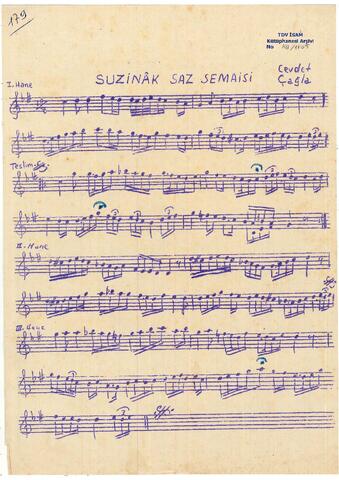 179
TDV İSAM
Kütüphanesi Arşivi
No
SUZİNÂK SAZ SEMAİSİ
Cevdet
Çağla
I. Hane
Teslim
II. Hane
III. Hane